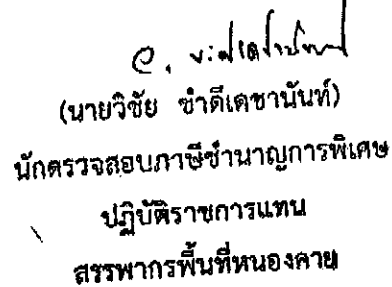 (นายวิชัย ช่ำดีเดชานันท์)
นักตรวจสอบภาษีชำนาญการพิเศษ
ปฏิบัติราชการแทน
สรรพากรพื้นที่หนองคาย